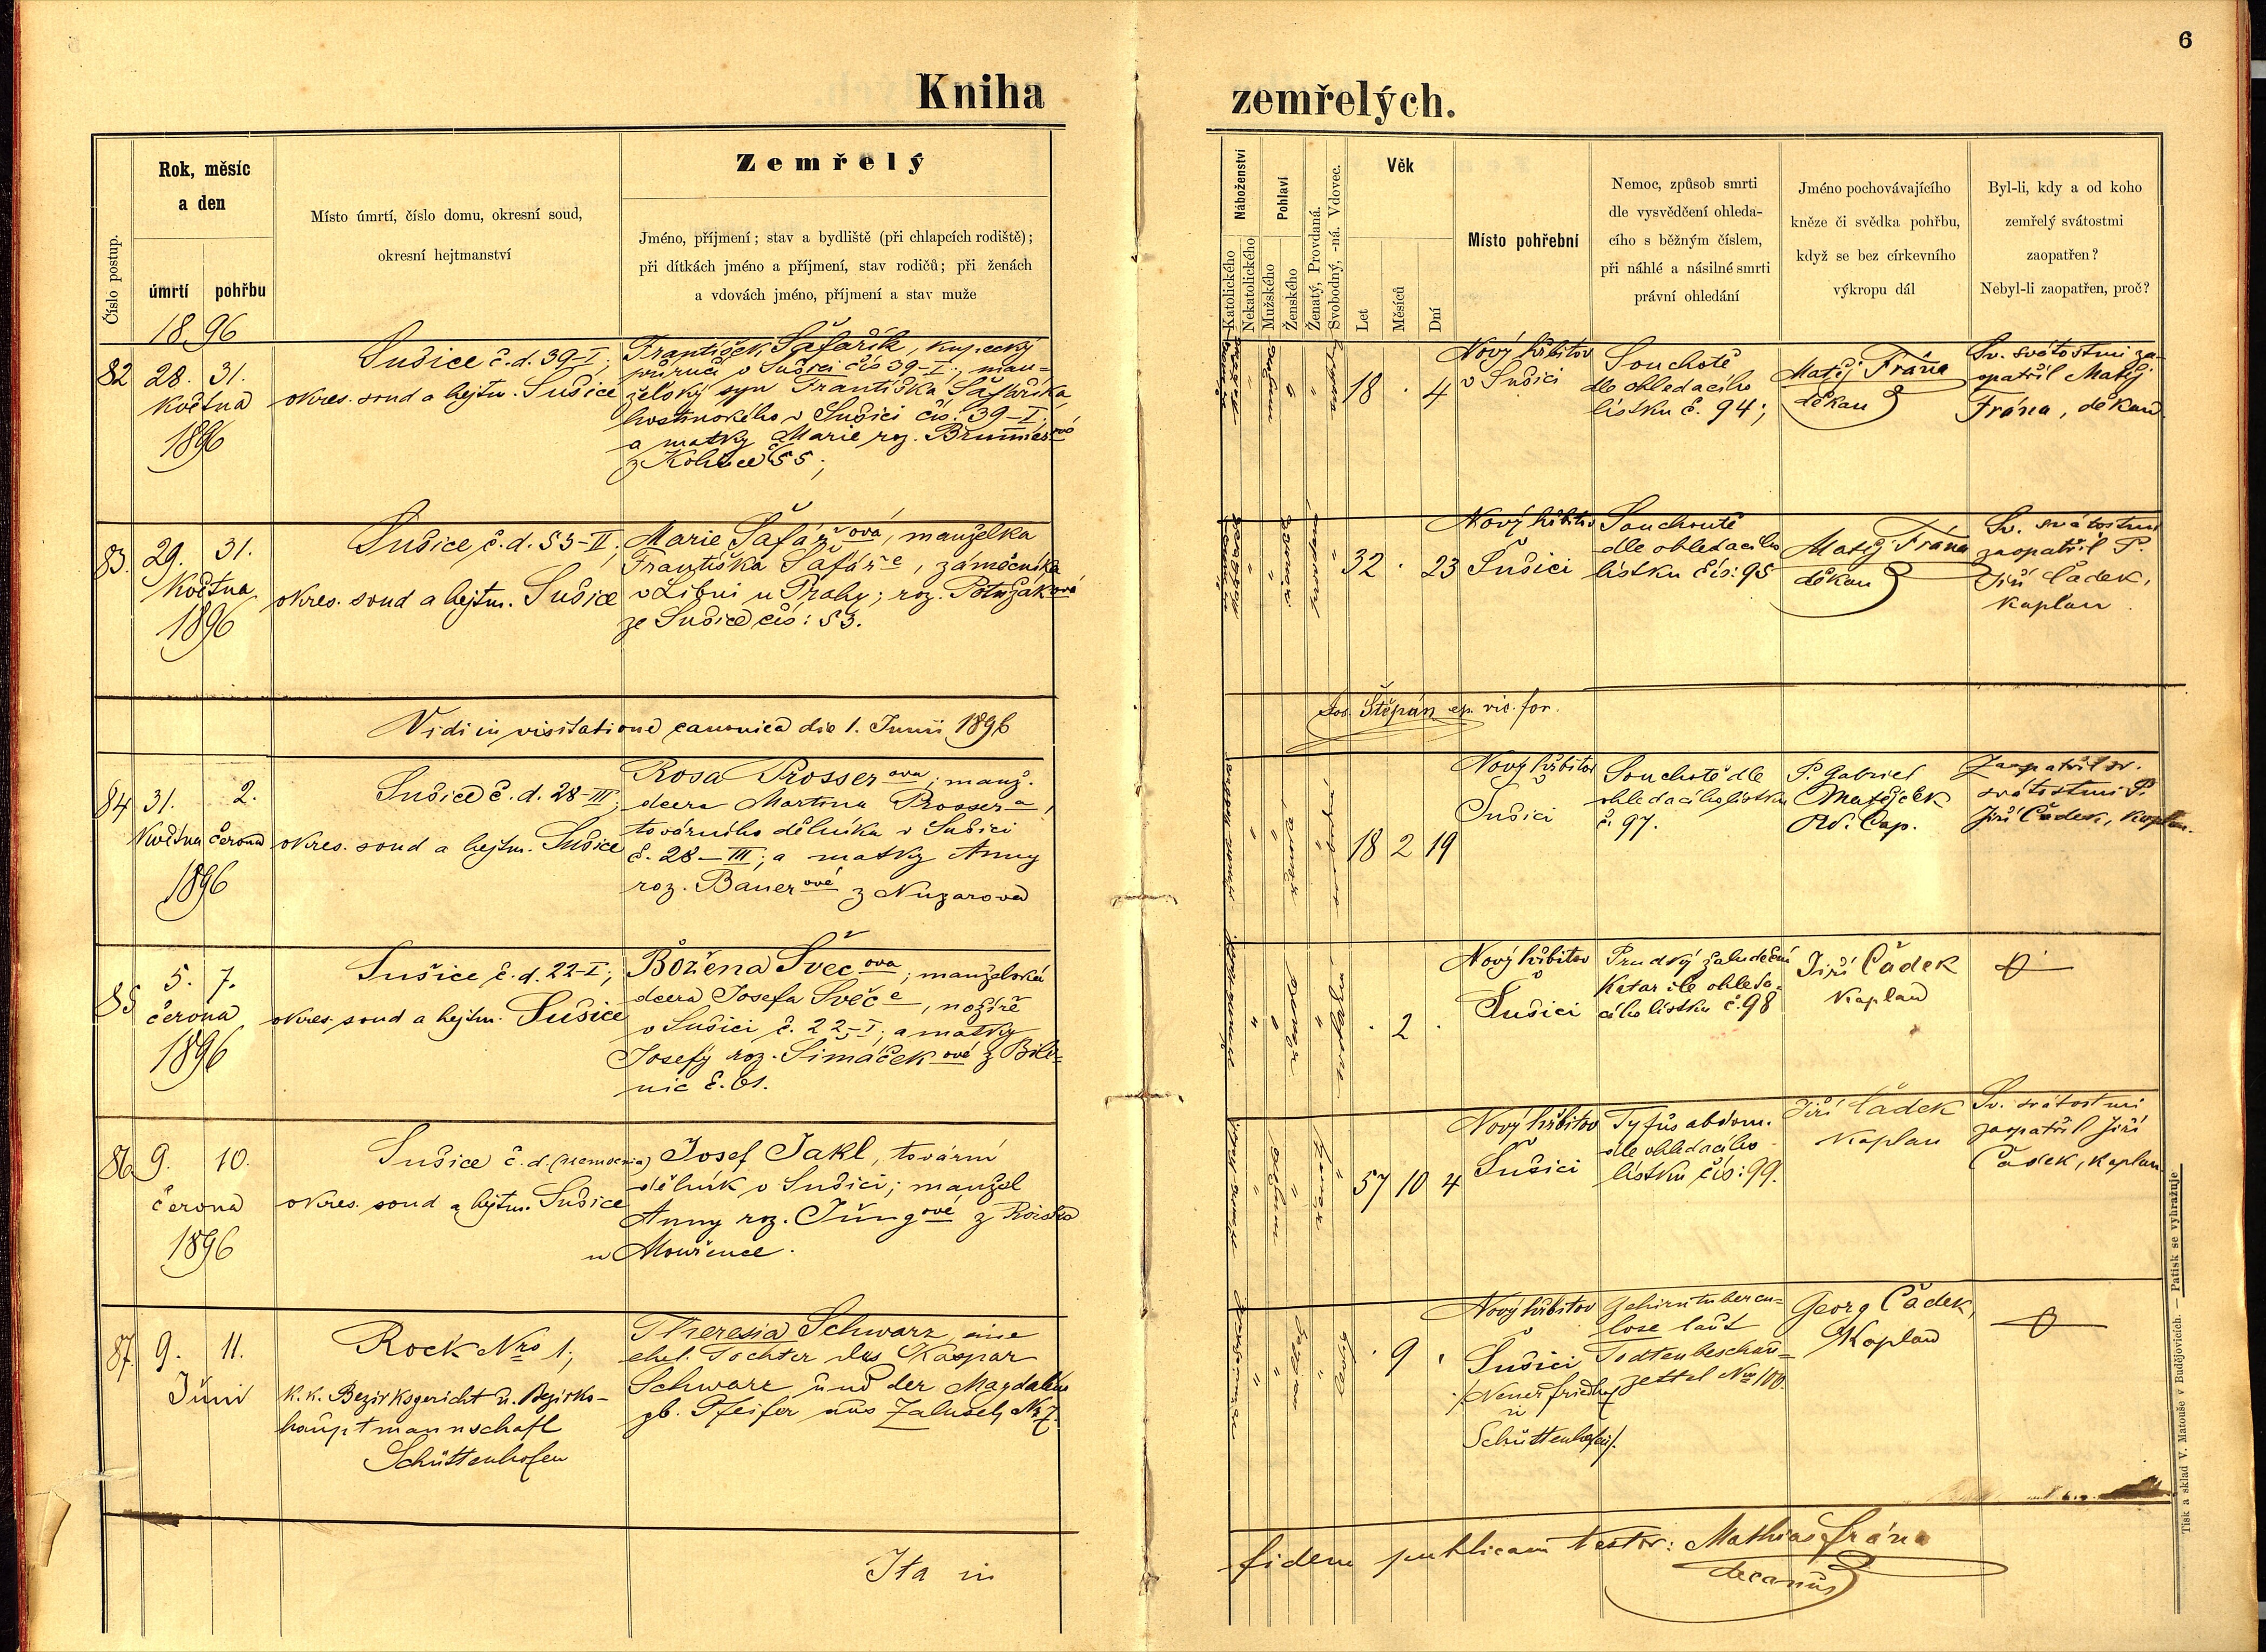 6
Kniha zemřelých.
Číslo postup.
Rok, měsíc
a den
úmrtí pohřbu
Místo úmrtí, číslo domu, okresní soud,
okresní hejtmanství
Zemřelý
Jméno, příjmení; stav a bydliště (při chlapcích rodiště);
při dítkách jméno a příjmení, stav rodičů; při ženách
a vdovách jméno, příjmení a stav muže
Náboženství
Katolického
Nekatolického
Pohlaví
Mužského
Ženského
Ženatý, Provdaná.
Svobodný, -ná. Vdovec.
Věk
Let
Měsíců
Dní
Místo pohřební
Nemoc, způsob smrti
dle vysvědčení ohleda-
cího s běžným číslem,
při náhlé a násilné smrti
právní ohledání
Jméno pochovávajícího
kněze či svědka pohřbu,
když se bez církevního
výkropu dál
Byl-li, kdy a od koho
zemřelý svátostmi
zaopatřen?
Nebyl-li zaopatřen, proč?
1896
82
28. 31.
května
1896
Sušice č.d. 39-I;
okres. soud a hejtm. Sušice
František Šafařík, kupecký
příručí v Sušici čís 39-I.; man-
želský syn Františka Šafaříka,
hostinského v Sušici čís. 39-I;
a matky Marie roz.
18 . 4
Nový hřbitov
v Sušici
Souchotě
dle ohledacího
lístku č. 94;
Matěj Frána
děkan
Sv. svátostmi za-
opatřil Matěj
Frána, děkan
83.
29. 31.
Května
1896
Sušice, č.d. 53-II;
okres. soud a hejtm. Sušice
Marie Šafářová, manželka
Františka Šafáře, zámečníka
v Libni u Prahy; roz. Potužáková
ze Sušice čís: 53.
32 . 23
Nový hřbitov
v Sušici
Souchoutě
dle ohledacího
lístku čís: 95
Matěj Frána
děkan
Sv. svátostmi
zaopatřil P.
Jiří Čadek,
kaplan.
Vidi in visitatione canonica die 1. Junii 1896
Jos. Štěpán ep. vic. for.
84
31. 2.
Května června
1896
Sušice č.d. 28-III;
okres. soud a hejtm. Sušice
Rosa Prosserova; manž.
dcera Martina Prossera,
továrního dělníka v Sušici
č. 28-III; a matky Anny
roz. Bauerové z Nuzarova
18 2 19
Nový hřbitov
v
Sušici
Souchotě dle
ohledacího lístku
č. 97.
P. Gabriel
Matějček
Ord. Cap.
Zaopatřil sv.
svátostmi P.
Jiří Čadek, kaplan.
85
5. 7.
června
1896
Sušice č.d. 22-I;
okres. soud a hejtm. Sušice
Božena Švecova; manželská
dcera Josefa Švece, nožíře
v Sušici č. 22-I; a matky
Josefy roz. Šimáčkové z
nic č. 61.
. 2 .
Nový hřbitov
v
Sušici
Prudký žaludeční
katar dle ohleda-
cího lístku č. 98
Jiří Čadek
kaplan
86
9. 10.
června
1896
Sušice č.d. (nemocnice)
okres. soud a hejtm. Sušice
Josef Jakl, tovární
dělník v Sušici; manžel
Anny roz. Jungové z
u Mouřence.
57 10 4
Nový hřbitov
v
Sušici
Tyfus abdom.
dle ohledacího
lístku čís: 99.
Jiří Čadek
kaplan
Sv. svátostmi
zaopatřil Jiří
Čadek, kaplan
87.
9. 11.
Juni
Rock Nro 1;
k.k. Bezirksgericht u. Bezirks-
hauptmannschaft
Schüttenhofen
Theresia Schwarz, eine
ehel. Tochter des Kaspar
Schwarz und der Magdalena
gb. Pfeifer aus Zaluseh No 7.
. 9 .
Nový hřbitov
v
Sušici
/Neuer Friedhof
in
Schüttenhofen/.
Gehirntubercu-
lose laut
Todtenbeschau-
zettel Nro 100.
Georg Čadek,
Kaplan
Ita in fidem publicam testor: Mathias Frána
decanus
Tisk a sklad V. Matouše v Budějovicích. — Patisk se vyhražuje